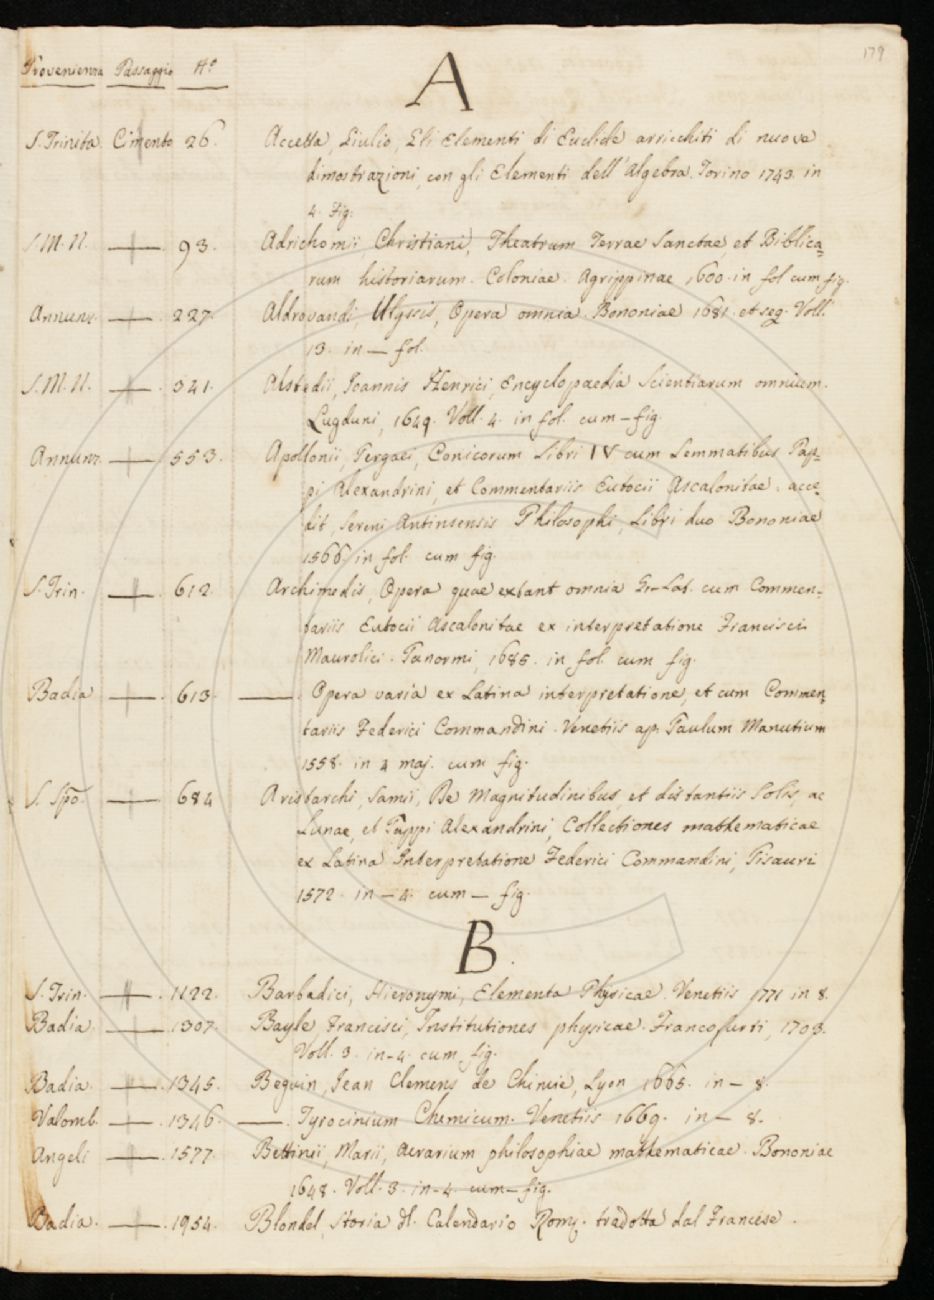 179
Provenienza Passaggio N.º
A
S. Trinita Cimento 26. Accetta, Giulio, Gli Elementi di Euclide arricchiti di nuove
dimostrazioni, con gli Elementi dell'Algebra. Torino 1743. in
4. Fig.
S. M. N. 93. Adrichomii, Christiani, Theatrum Terrae Sanctae, et Biblica-
rum historiarum. Coloniae. Agrippinae 1600. in fol cum fig.
Annunz. 227. Aldrovandi, Ulyssis, Opera omnia. Bononiae 1681. et seq. Voll.
13. in — fol.
S. M. N. 341. Alstedii, Joannis Henrici, Encyclopaedia Scientiarum omnium.
Lugduni, 1649. Voll. 4. in fol. cum — fig.
Annunz. 553. Apollonii, Pergaei, Conicorum Libri IV cum Lemmatibus Pap-
pi Alexandrini, et Commentariis Eutocii Ascalonitae. acce-
dit, Sereni Antinsensis Philosophi, Libri duo Bononiae
1566. in fol. cum fig.
S. Trin. 612. Archimedis, Opera quae extant omnia Gr-Lat. cum Commen-
tariis Eutocii Ascalonitae ex interpretatione Francisci
Maurolici. Panormi, 1685. in fol. cum fig.
Badia 613. ——. Opera varia ex Latina interpretatione, et cum Commen-
tariis Federici Commandini. Venetiis ap. Paulum Manutium
1558. in 4 maj. cum fig.
S. Spo. 684 Aristarchi, Samii, De Magnitudinibus, et distantiis Solis, ac
Lunae, et Pappi Alexandrini, Collectiones mathematicae
ex Latina Interpretatione Federici Commandini, Pisauri
1572. in — 4. cum — fig.
B.
S. Trin. 1122. Barbadici, Hieronymi, Elementa Physicae. Venetiis 1771 in 8.
Badia. 1307. Bayle Francisci, Institutiones physicae. Francofurti, 1703.
Voll. 3. in-4. cum fig.
Badia. 1345. Beguin, Jean Clemens de Chimie, Lyon 1665. in — 8.
Valomb. 1346. ——. Tyrocinium Chemicum. Venetiis 1669. in — 8.
Angeli 1577. Bettinii, Marii, Aerarium philosophiae mathematicae. Bononiae
1648. Voll. 3. in-4. cum — fig.
Badia. 1954. Blondel, Storia dl. Calendario Rom. tradotta dal Francese.